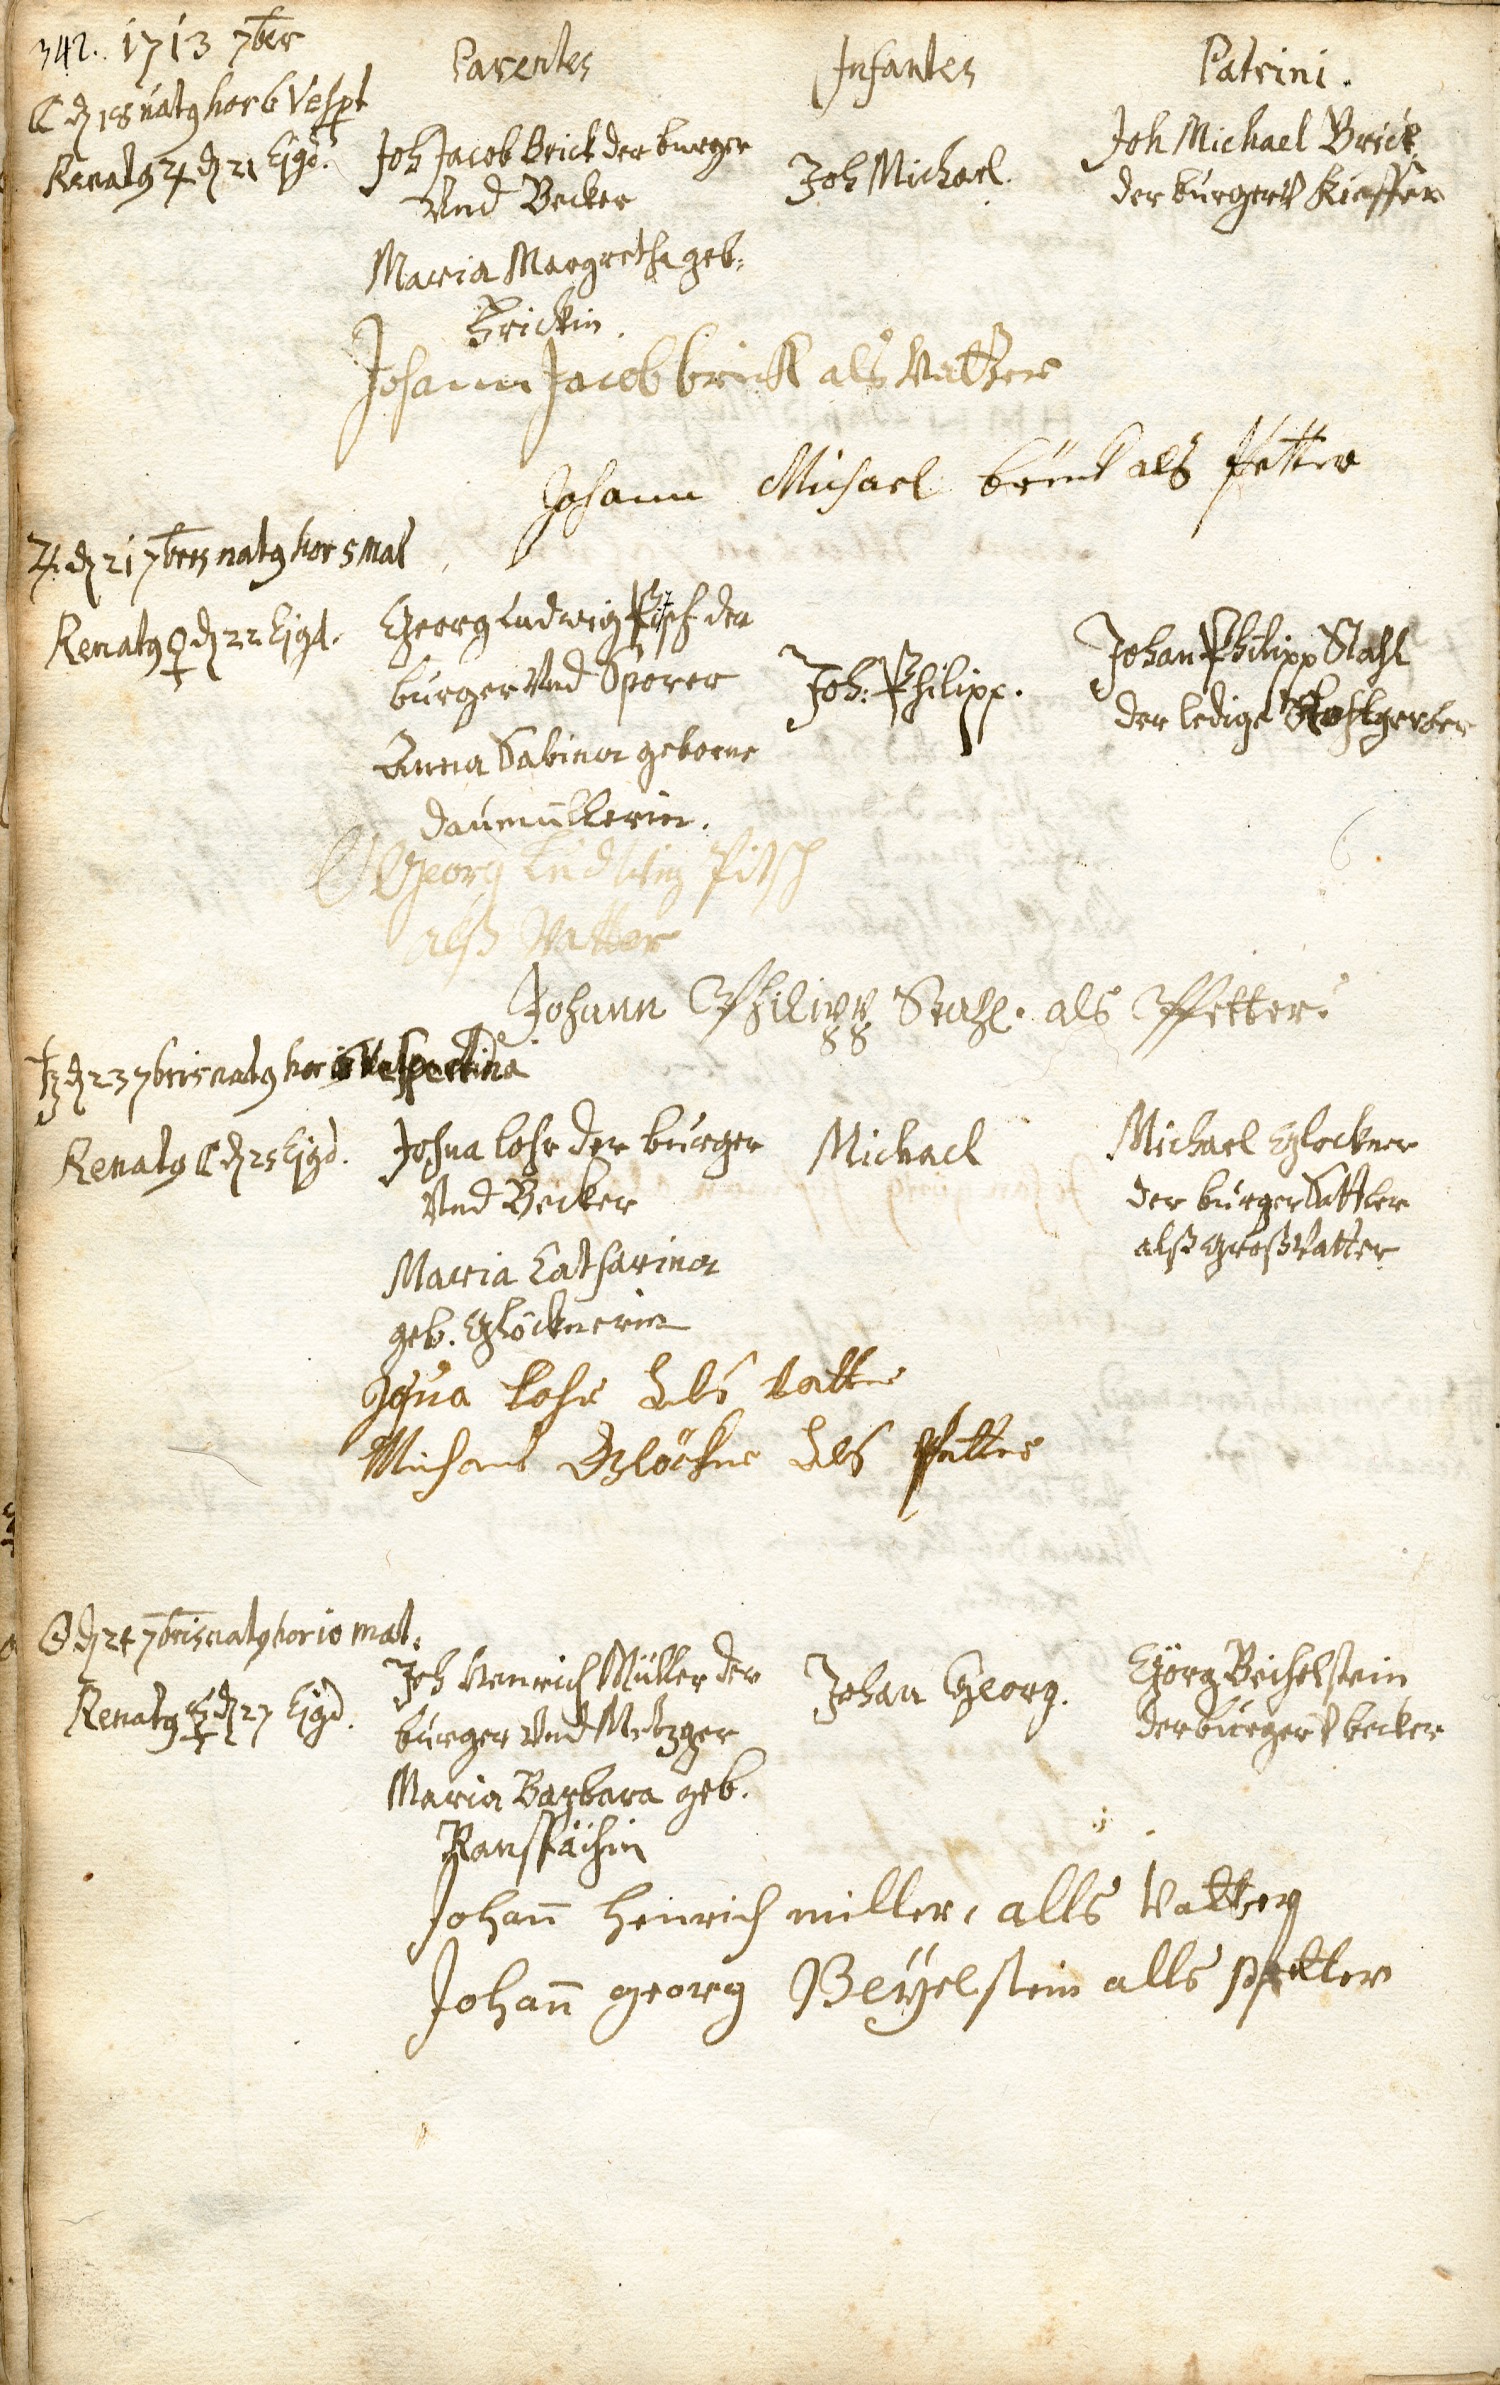 342. 1713 7ber
Parentes Infantes Patrini.
☾ d 18 natq hor 6 Vespt
Renatq ♃ d 21 Ejgd.
Joh Jacob Brick der burger
Und Becker
Maria Margretha geb:
Brickin.
Joh Michael.
Joh Michael Brick
der burger V Kieffer
Johann Jacob brick als Vatter
Johann Michael brick als Petter
♃ d 21 7bris natq hor 5 mat
Renatq ♀ d 22 Ejgd.
Georg Ludwig der
burger Und Sporer
Anna Sabina geborne
Daumüllerin.
Joh: Philipp.
Johan Philipp Stahl
der ledige
Georg Ludwig Pitsch
alß Vatter
Johann Philipp Stahl. als Pfetter.
♄ d 23 7bris natq hor Vespertina
Renatq ☾ d 25 Ejgd.
Josua Lohr der burger
Und Becker
Maria Catharina
geb. Glöcknerin
Michael
Michael Glockner
der burger Sattler
alß GroßVatter
Josua Lohr Als Vatter
Michael Glöckner Als Pfetter
☉ d 24 7bris natq hor 10 mat.
Renatq d 27 Ejgd.
Joh Henrich Müller der
burger Und Metzger
Maria Barbara geb.
Ranspächin
Johan Georg.
Georg Beichelstein
der burger V becker
Johan̄ Henrich miller, alls Vatter
Johan̄ georg Beÿelstein alls pfetter